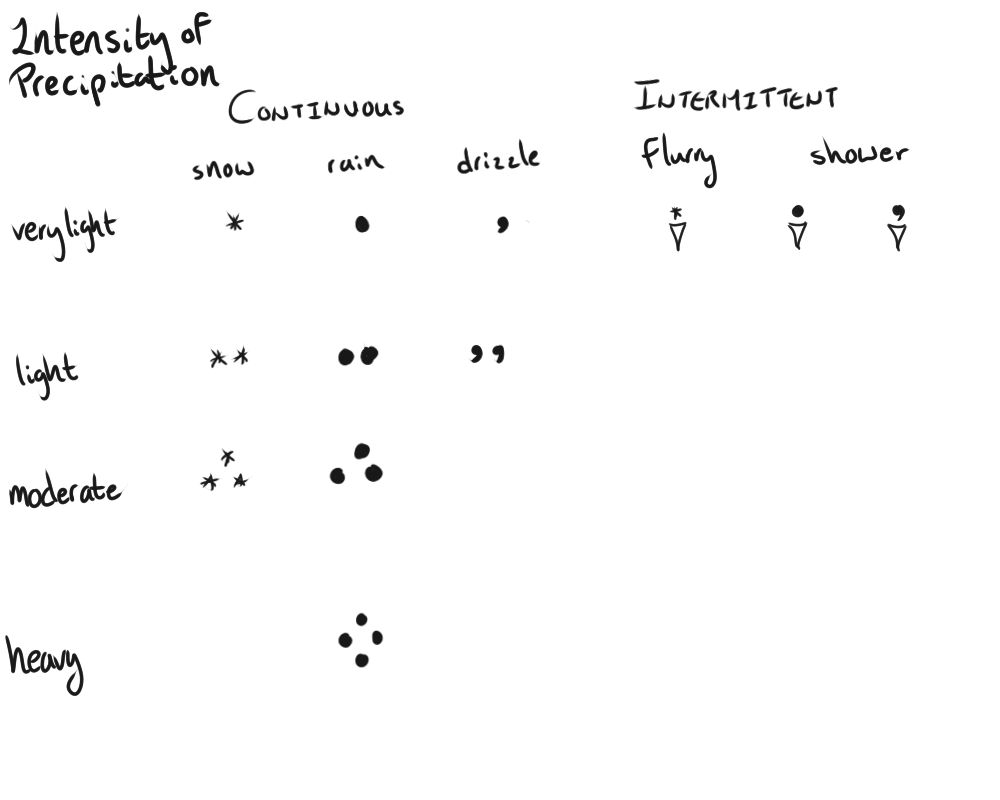 Intensity of
Precipitation
CONTINUOUS INTERMITTENT
snow rain drizzle flurry shower
very light
light
moderate
heavy